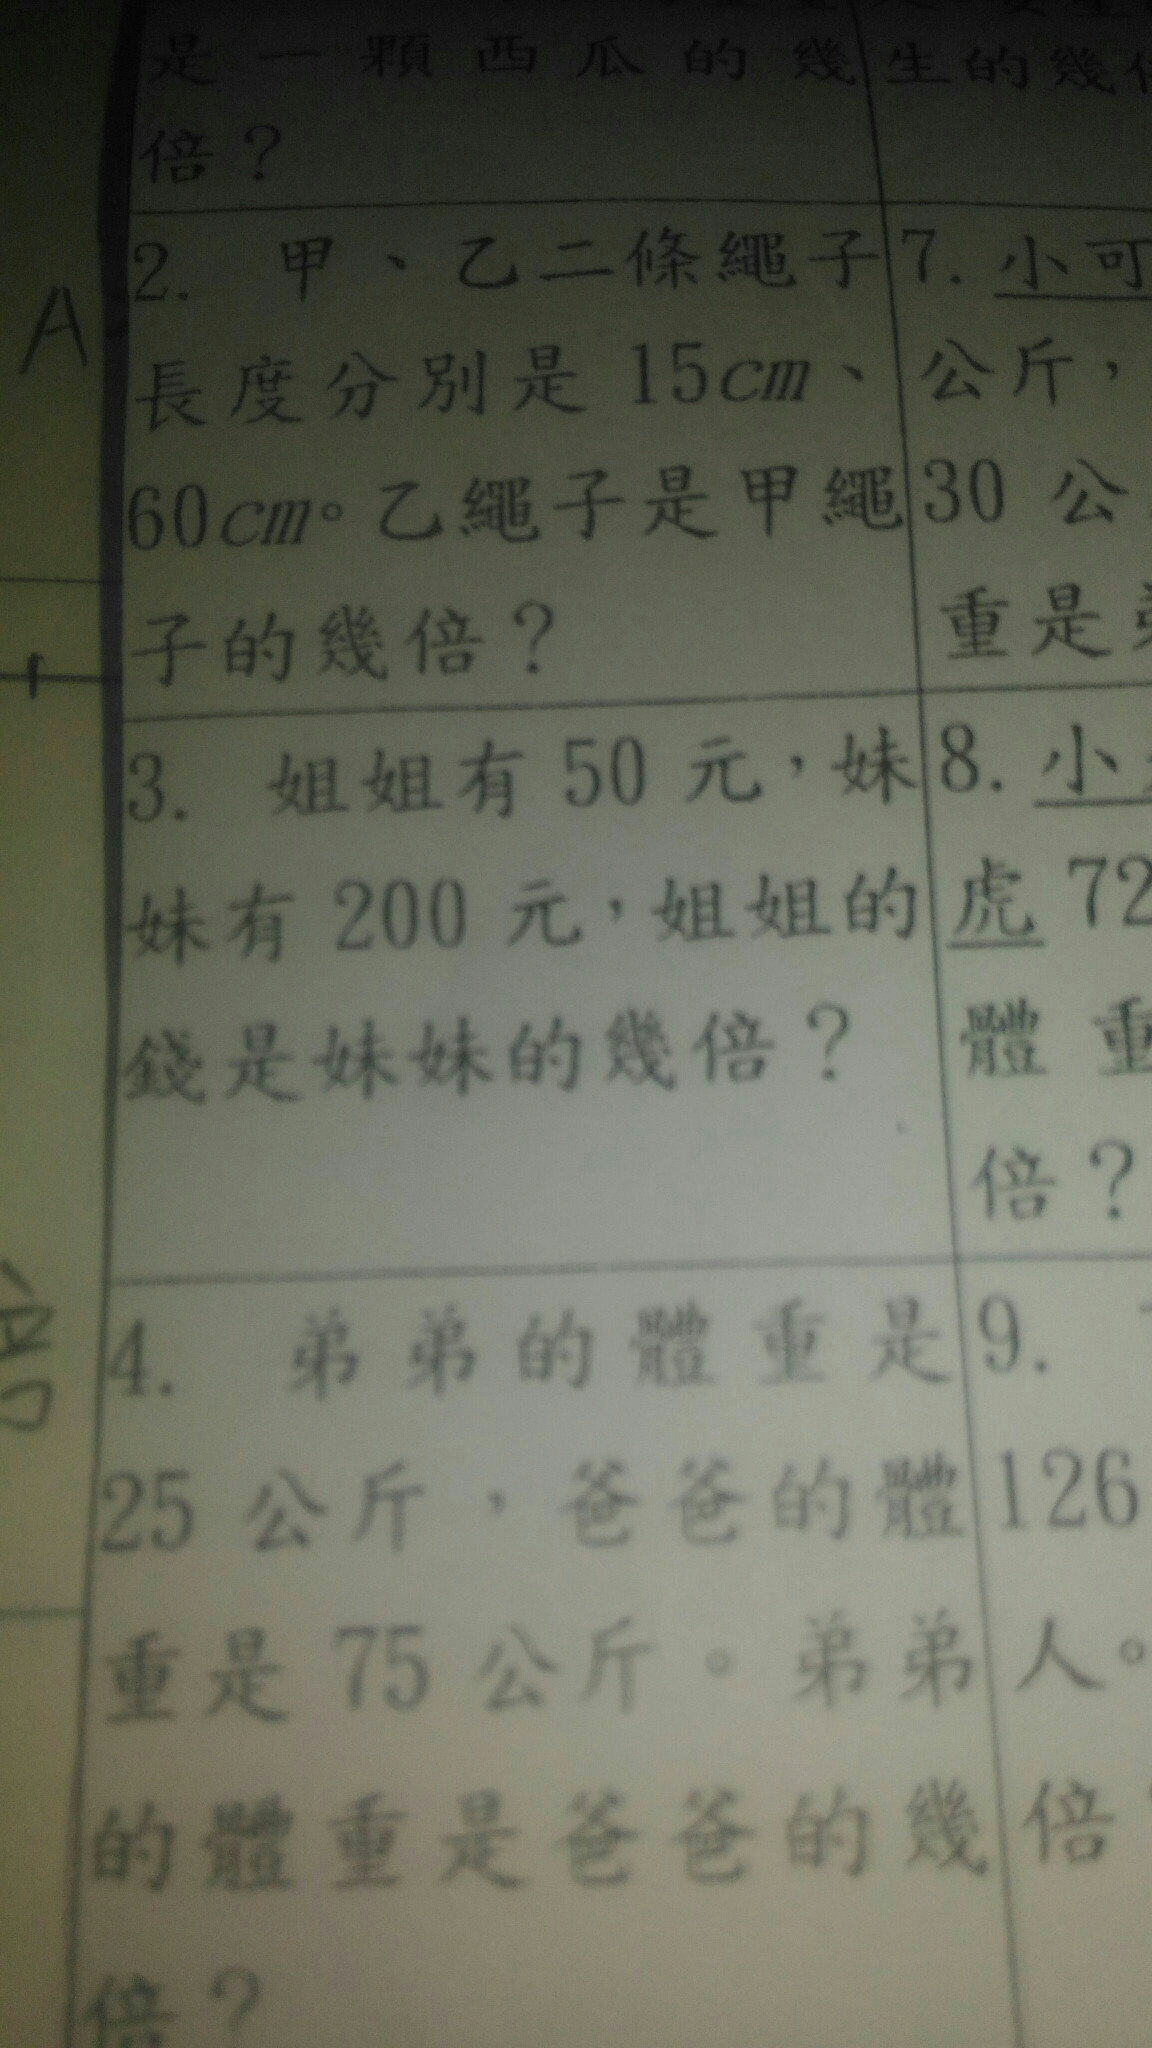 是一顆西瓜的幾
倍？
2. 甲、乙二條繩子
長度分別是 15cm、
60cm。乙繩子是甲繩
子的幾倍？
3. 姐姐有 50 元，妹
妹有 200 元，姐姐的
錢是妹妹的幾倍？
4. 弟弟的體重是
25 公斤，爸爸的體
重是 75 公斤。弟弟
的體重是爸爸的幾
倍？
生的幾
7. 小可
公斤，
30 公
重是
8. 小
虎 72
體重
倍？
9.
126
人。
倍
A
倍